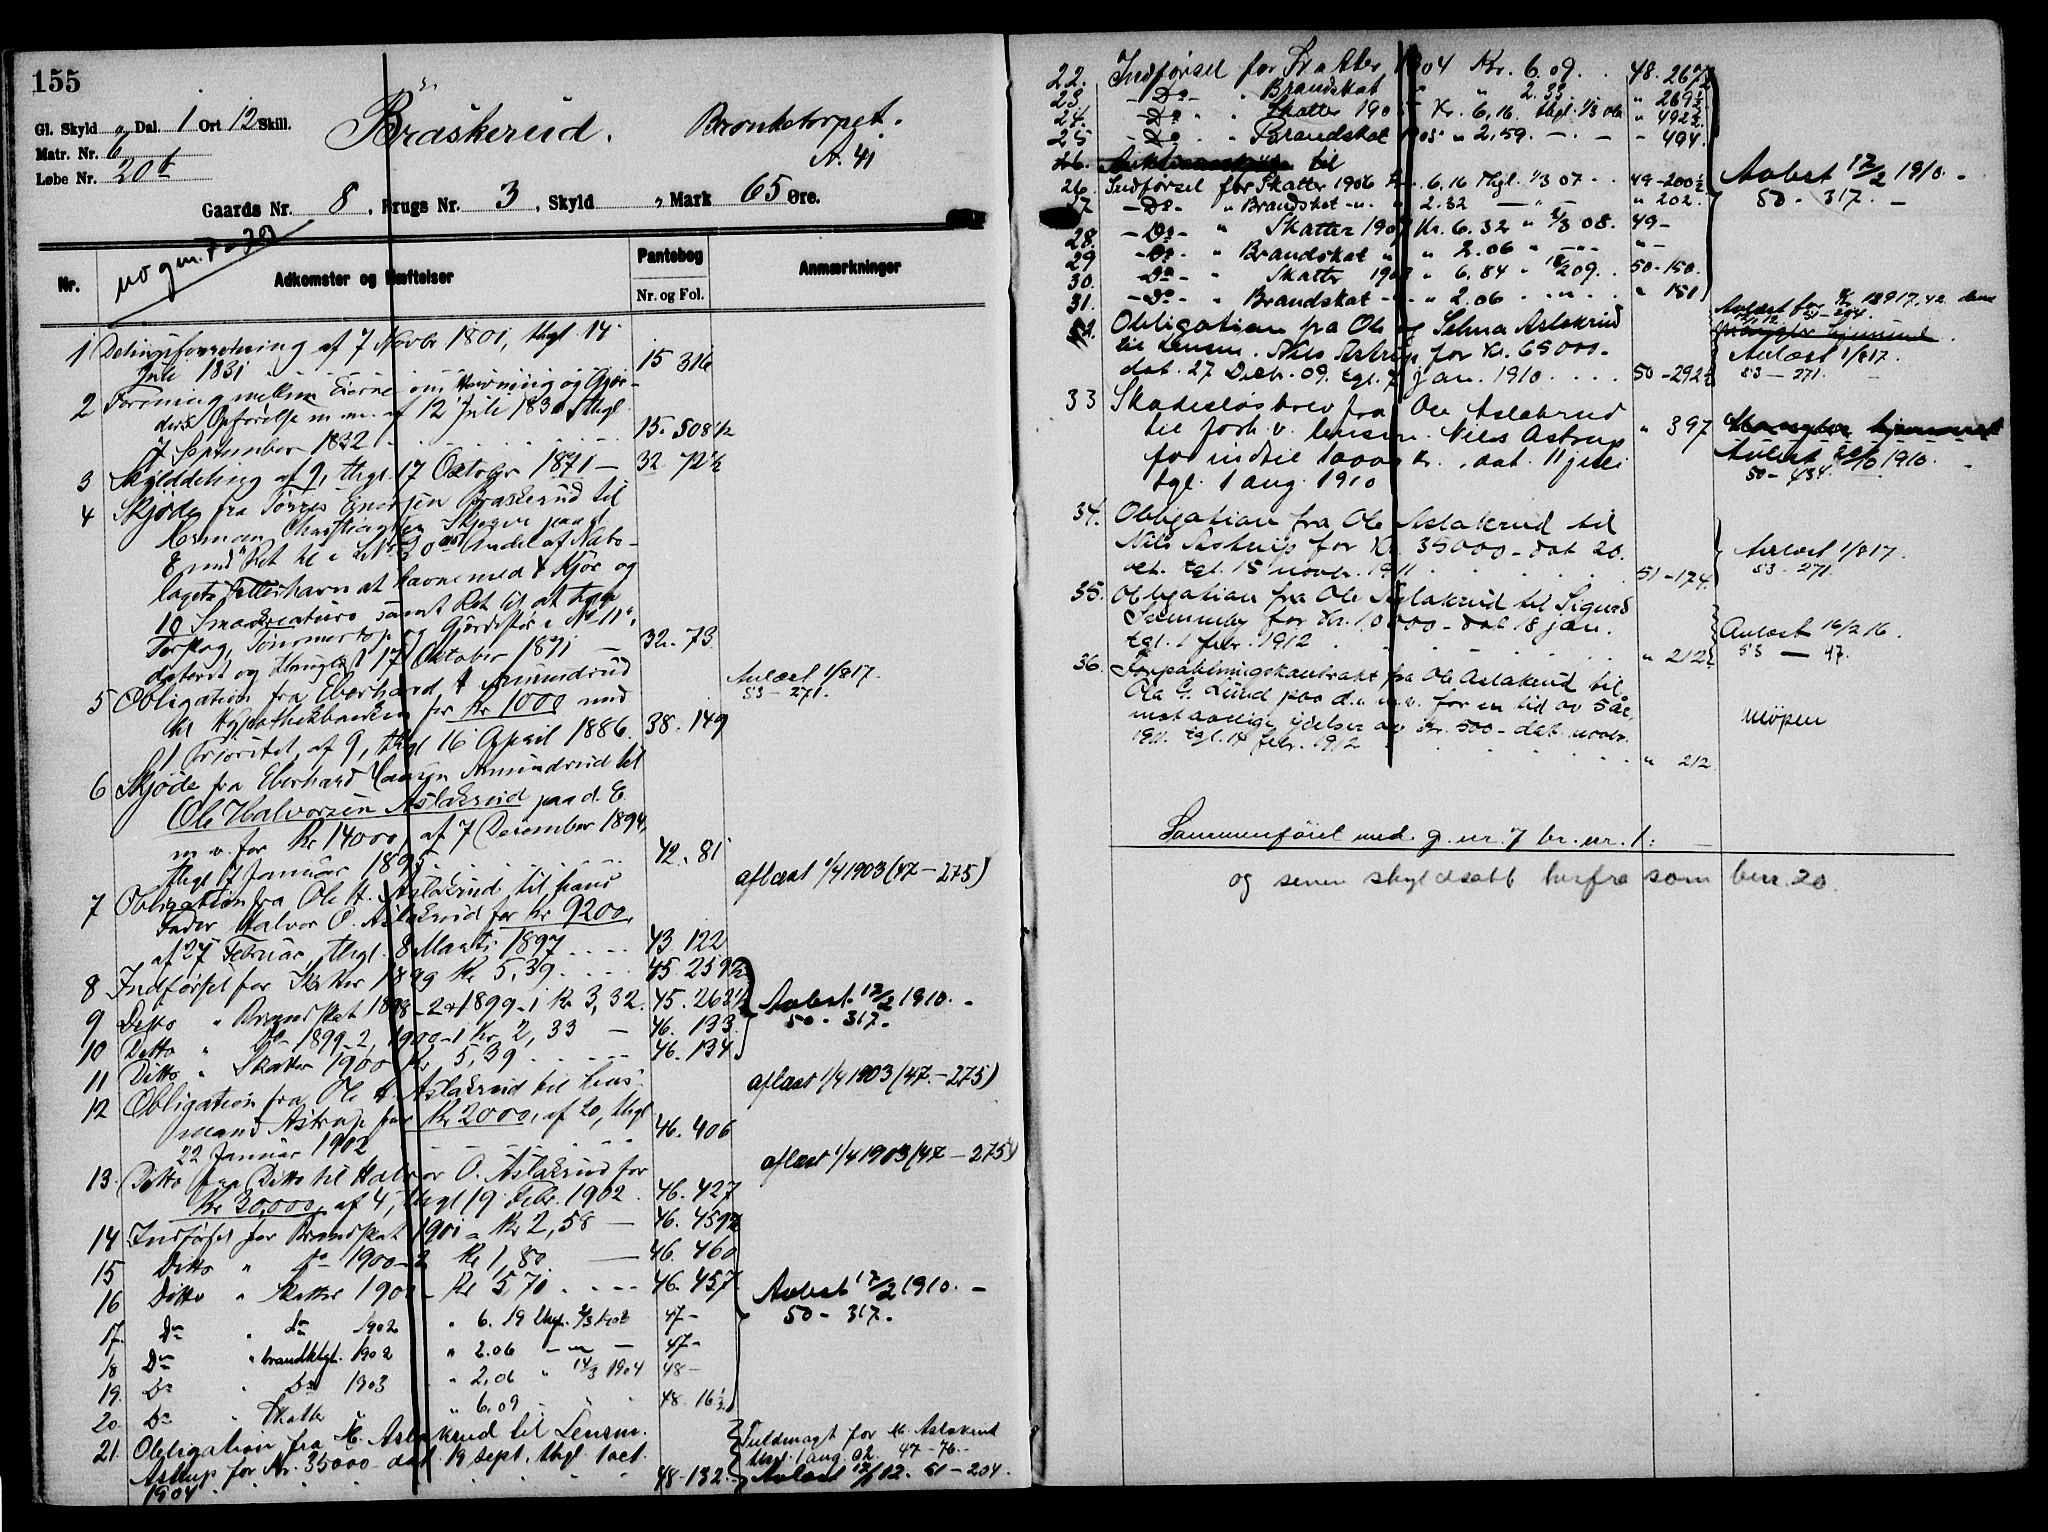 155
Gl. Skyld " Dal. 1 Ort 12 Skill.
Matr. Nr. 6
Løbe Nr. 20 f
Braskerud. Bronketorpet.
A. 41
Gaards Nr. 8, Brugs Nr. 3, Skyld " Mark 65 Øre.
no gm. 7-20
Nr. Adkomster og Hæftelser Pantebog Nr. og Fol. Anmærkninger
1 Delingsforretning af 7 Novbr 1801, thgl. 14
Juli 1831 15 316
2 Forening mellem Eierne om Havning og Gjær-
ders Opførelse m.m. af 12 Juli 1830, thgl.
7 September 1832 15. 508 1/2
3 Skylddeling af 9, thgl. 17 Oktober 1871 — 32. 72 1/2
4 Skjøde fra Torres Enersen Braskerud til
Herman Christiansen paa d.
E. med Ret til i Andel af Nabo-
lagets Fællerhavn at havne med 4 Kjør og
10 Smaakreature samt Ret til at tage
Torskog, Tømmertop og Gjærdefor i No 11",
dateret og thinglæst 17 Oktober 1871 — 32. 73
5 Obligation fra Eberhard H. Amundrud
til Hypothekbanken for Kr 1000 med
1 Prioritet, af 9, thgl 16 April 1886. 38. 149
Avlæst 1/8 17.
53 - 271.
6 Skjøde fra Eberhard Hansen Amundrud til
Ole Halvorsen Aslakrud paa d. E.
m. v. for Kr 14000, af 7 December 1894,
thgl. 7 Januar 1895. 42. 81
7 Obligation fra Ole H. Aslakrud til hans
Fader Halvor O. Aslakrud for Kr 9200,
af 27 Februar, thgl. 8 Marts 1897 .... 43. 122
aflæst 1/4 1903 (47-275)
8 Indførsel for Skatter 1899 Kr 5,39. 45. 259 1/2
9 Ditto " Brandskat 1898-2 & 1899-1 Kr 3,32. 45. 262 1/2
10 Ditto " Do 1899-2, 1900-1 Kr. 2,33 — 46. 133
11 Ditto " Skatter 1900 Kr 5,39 46. 134
Avlæst 17/2 1910. -
50 - 317. -
12 Obligation fra Ole H. Aslakrud til Lens-
mand Astrup for Kr 2000, af 20, thgl
22 Januar 1902 46. 406
aflæst 1/4 1903 (47.-275)
13. Ditto fra Ditto til Halvor O. Aslakrud for
Kr 30,000, af 4, thgl 19 Febr. 1902. 46. 427
aflæst 1/4 1903 (47-275)
14 Indførsel for Brandskat 1901 - Kr 2,58 — 46. 459 1/2
15 Ditto " do 1900-2 Kr 1,80. — 46. 460
16 Ditto " Skatter 1901 - Kr 5,70 .... 46. 457
17. Do " do 1902 " 6.19 thgl. 47-
18 Do " brandktgt. 1902 " 2.06 — " — 47-
19. Do " Do 1903 " 2,06 " 14/3 1904 48-
20. Do " Skatter " " 6.09 " " 48. 16 1/2
Avlæst 17/2 1910. -
50 - 317. -
21. Obligation fra H. Aslakrud til Lensm.
Astrup for Kr. 35000 dat. 19 sept. thgl. 1 oct.
1904 48-132.
Fuldmagt for H. Aslakrud
thgl. 1 aug. 02. 47-76.-
Avlæst 51-204.
22. Indførsel for Skatter 1904 Kr. 6.09. 48. 267 1/2
23. -Do- " Brandskat " " 2.33. " 269 1/2
24. -Do- " Skatter 1905 Kr. 6,16. thgl. 1/3 06 " 492 1/2
25 -Do " Brandskat 1905 " 2.59. — — - 494.
26. til
26. Indførsel for Skatter 1906 Kr. 6.16 Thgl. 1/3 07 49-200 1/2
27 -Do- " Brandskat -"- " 2.32 — " — " 202.
28. -Do- " Skatter 1907 Kr. 6.32 " 2/3 08. 49-
29 -Do- " Brandskat " " 2.06 " -"- "-
30. -Do- " Skatter 1908 " 6.84 " 50-150.
31. -Do- " Brandskat -"- " 2.06 . . " . " 151
Avlæst 17/2 1910. -
50 - 317. —
32. Obligation fra Ole og Selma Aslakrud
til Lensm. Nils Astrup for Kr. 65000.-
dat. 27 Decbr. 09. tgl. 7 jan. 1910. .... 50-292 1/2
Avlæst for Kr 13917.42
51-204.
Avlæst 1/8 17.
53 - 271.
33 Skadesløsbrev fra Ole Aslakrud
til forh. v. lensm. Nils Astrup
for indtil 10000 Kr., dat. 11 juli
tgl. 1 aug. 1910 " 397
Avlæst 1910.
50 - 434.
34. Obligation fra Ole Aslakrud til
Nils Astrup for Kr. 35000 - dat 20.
oct. tgl. 15 novbr. 1911 51-174.
Avlæst 1/8 17.
53 - 271.
35. Obligation fra Ole Aslakrud til Sigurd
for Kr. 10000 - dat 18 jan.
tgl. 1 febr. 1912 " 212 1/2
Avlæst 16/2 16.
53 — 47.
36. Forpaktningskontrakt fra Ole Aslakrud til
Ola G. Lund paa d. e. m.v. for en tid av 5 år
mot aarlige ydelser av Kr. 500 - dat. novbr.
1911. tgl. 14 febr. 1912 " 212
utløpen
Sammenføiet med g. nr. 7 br. nr. 1: —
og senere skyldsatt herfra som bnr. 20.